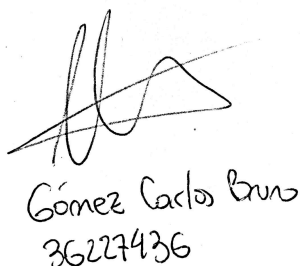 Gómez Carlos Bruno
36227436